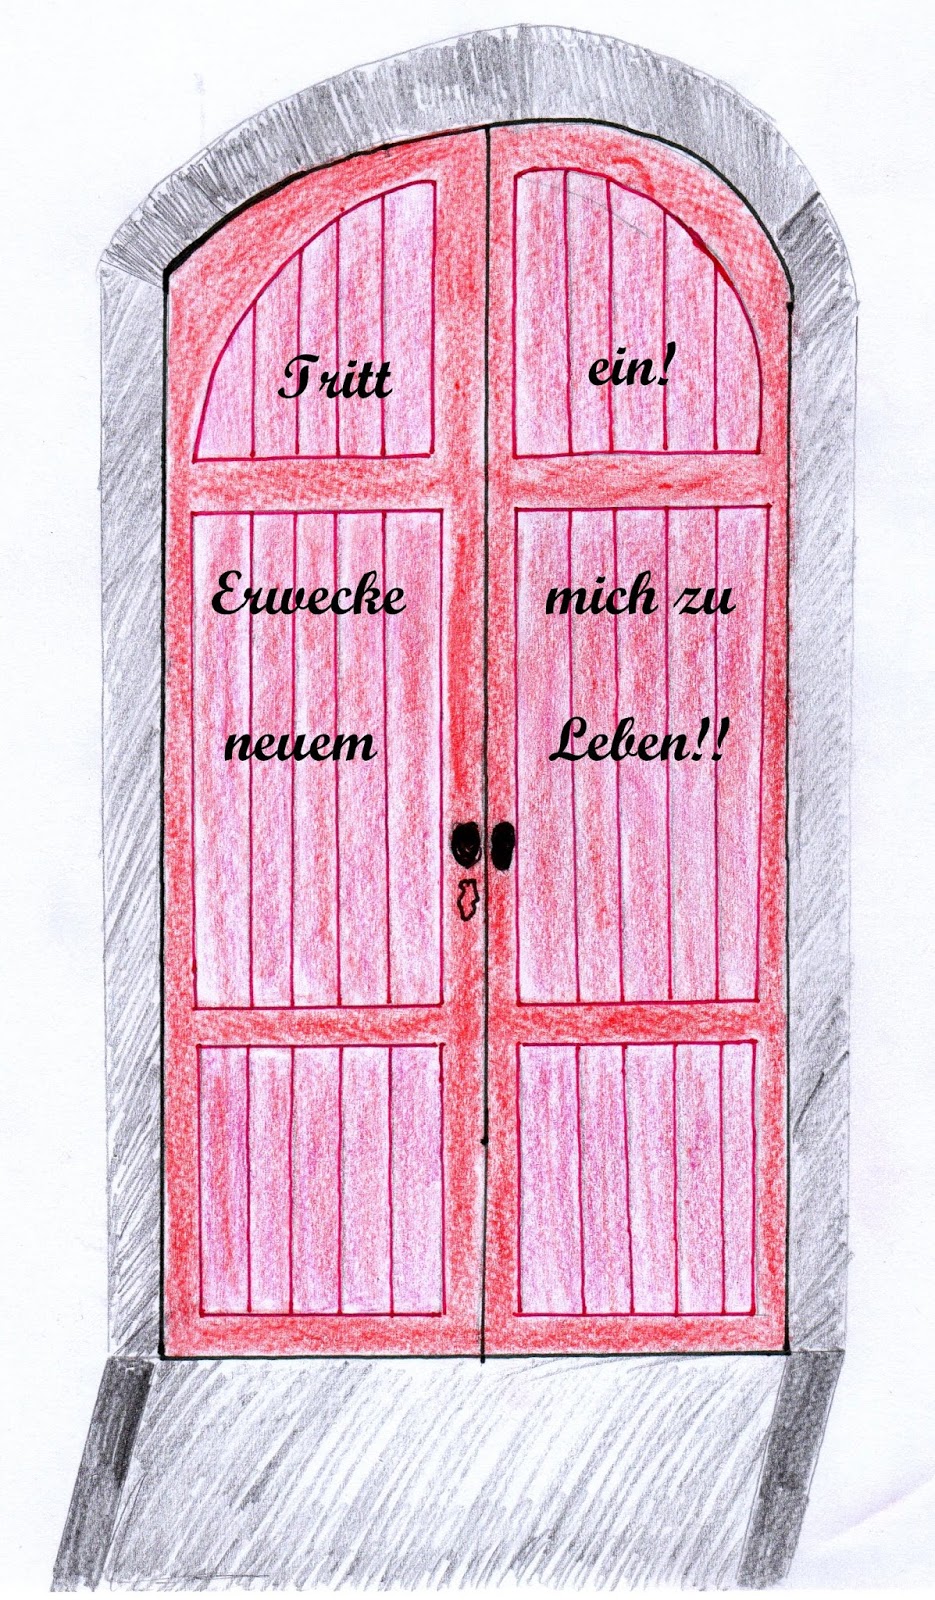 Tritt ein!
Erwecke mich zu
neuem Leben!!